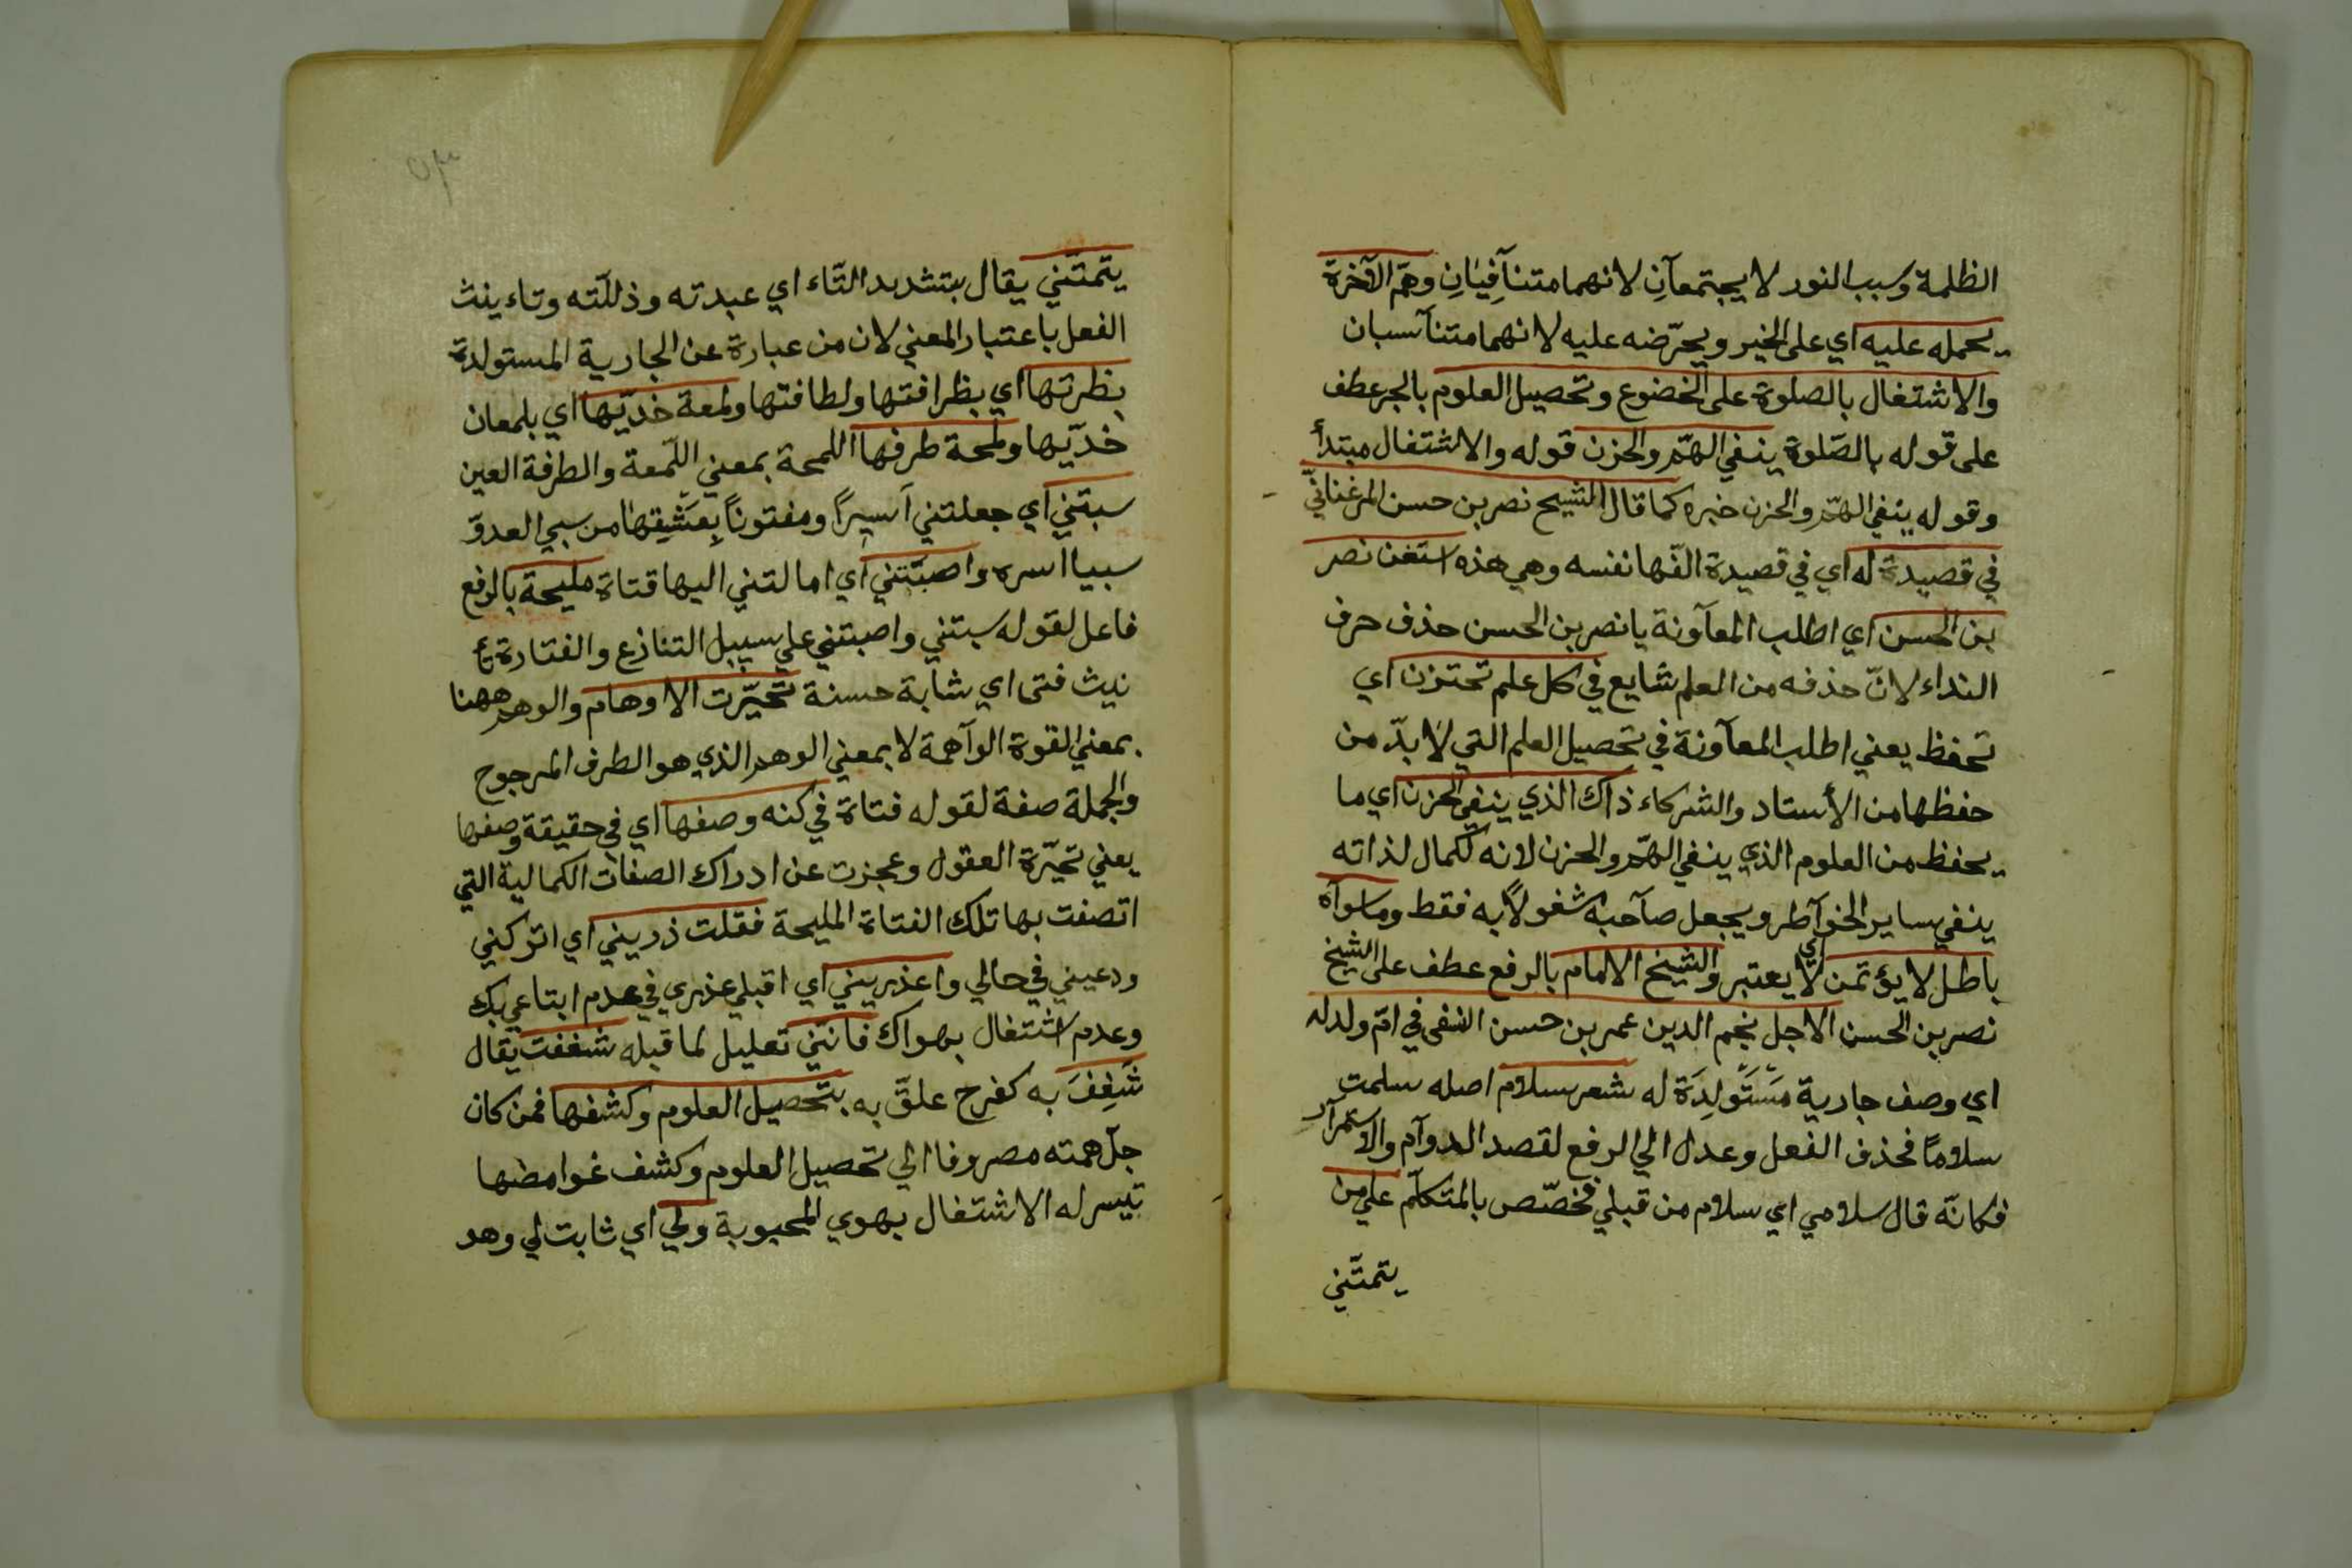 الظلمة وسبب النور لا يجتمعآنِ لانهما متنآفِيَانِ وهمّ الآخرة
يحمله عليه اي على الخير ويحرّضه عليه لانهما متنآسبان
والاشتغال بالصلوة على الخضوع وتحصيل العلوم بالجر عطف
على قوله بالصّلوة ينفي الهمّ والحزن قوله والاشتغال مبتدأ
وقوله ينفي الهمّ والحزن خبره كما قال الشيخ نصر بن حسن المرغنانيّ
في قصيدة له اي في قصيدة الّفها نفسه وهي هذه استغن نصر
بن الحسن اي اطلب المعآونة يا نصر بن الحسن حذف حرف
النداء لانّ حذفه من العلم شايع في كل علم تختزن اي
تحفظ يعني اطلب المعآونة في تحصيل العلم التي لا بدّ من
حفظها من الأستاد والشركاء ذاك الذي ينفي الحزن اي ما
يحفظ من العلوم الذي ينفي الهمّ والحزن لانه لكمال لذاته
ينفي ساير الخوآطر ويجعل صآحبه شغولاً به فقط وما سوآه
باطل لا يؤتمن اي لا يعتبر والشيخ الامام بالرفع عطف على الشيخ
نصر بن الحسن الاجل نجم الدين عمر بن حسن النسفي في امّ ولد له
اي وصف جارية مَسْتَولِدَة له شعر سلام اصله سلمت
سلامًا فحذف الفعل وعدل الي الرفع لقصد الدوآم والاستمرآر
فكانّه قال سلامي اي سلام من قبلي فخصّص بالمتكلّم علي من
يتمتّني
٥٣
يتمتّني يقال بتشديد التّاء اي عبدته وذللّته وتاءينث
الفعل باعتبار المعني لان من عبارة عن الجارية المستولدة
بظرتها اي بظرافتها ولطافتها ولمعة خدّيها اي بلمعان
خدّيها ولمحة طرفها اللمحة بمعني اللّمعة والطرفة العين
سبتني اي جعلتني آسيراً ومفتوناً بِعَشِقِها من سبي العدوّ
سبيا اسره واصبّتني اي امالتني اليها قتاة مليحة بالرفع
فاعل لقوله سبتني واصبتني علي سبيل التنازع والفتادة تٔا
نيث فتى اي شابة حسنة تحيّرت الاوهام والوهم ههنا
بمعني القوة الوآهمة لا بمعني الوهم الذي هو الطرف المرجوح
والجملة صفة لقوله فتاة في كنه وصفها اي في حقيقة وصفها
يعني تحيّرة العقول وعجزت عن ادراك الصفات الكمالية التي
اتصفت بها تلك الفتاة المليحة فقلت ذريني اي اتركني
ودعيني في حالي واعذريني اي اقبلي عذري في عدم ابتاعي بك
وعدم اشتغال بهواك فانتي تعليل لما قبله شغفت يقال
شَغِفَ به كفرح علقّ به بتحصيل العلوم وكشفها فمن كان
جلّ همته مصروفا الي تحصيل العلوم وكشف غوامضها
تيسر له الاشتغال بهوي المحبوبة ولي اي ثابت لي وهد